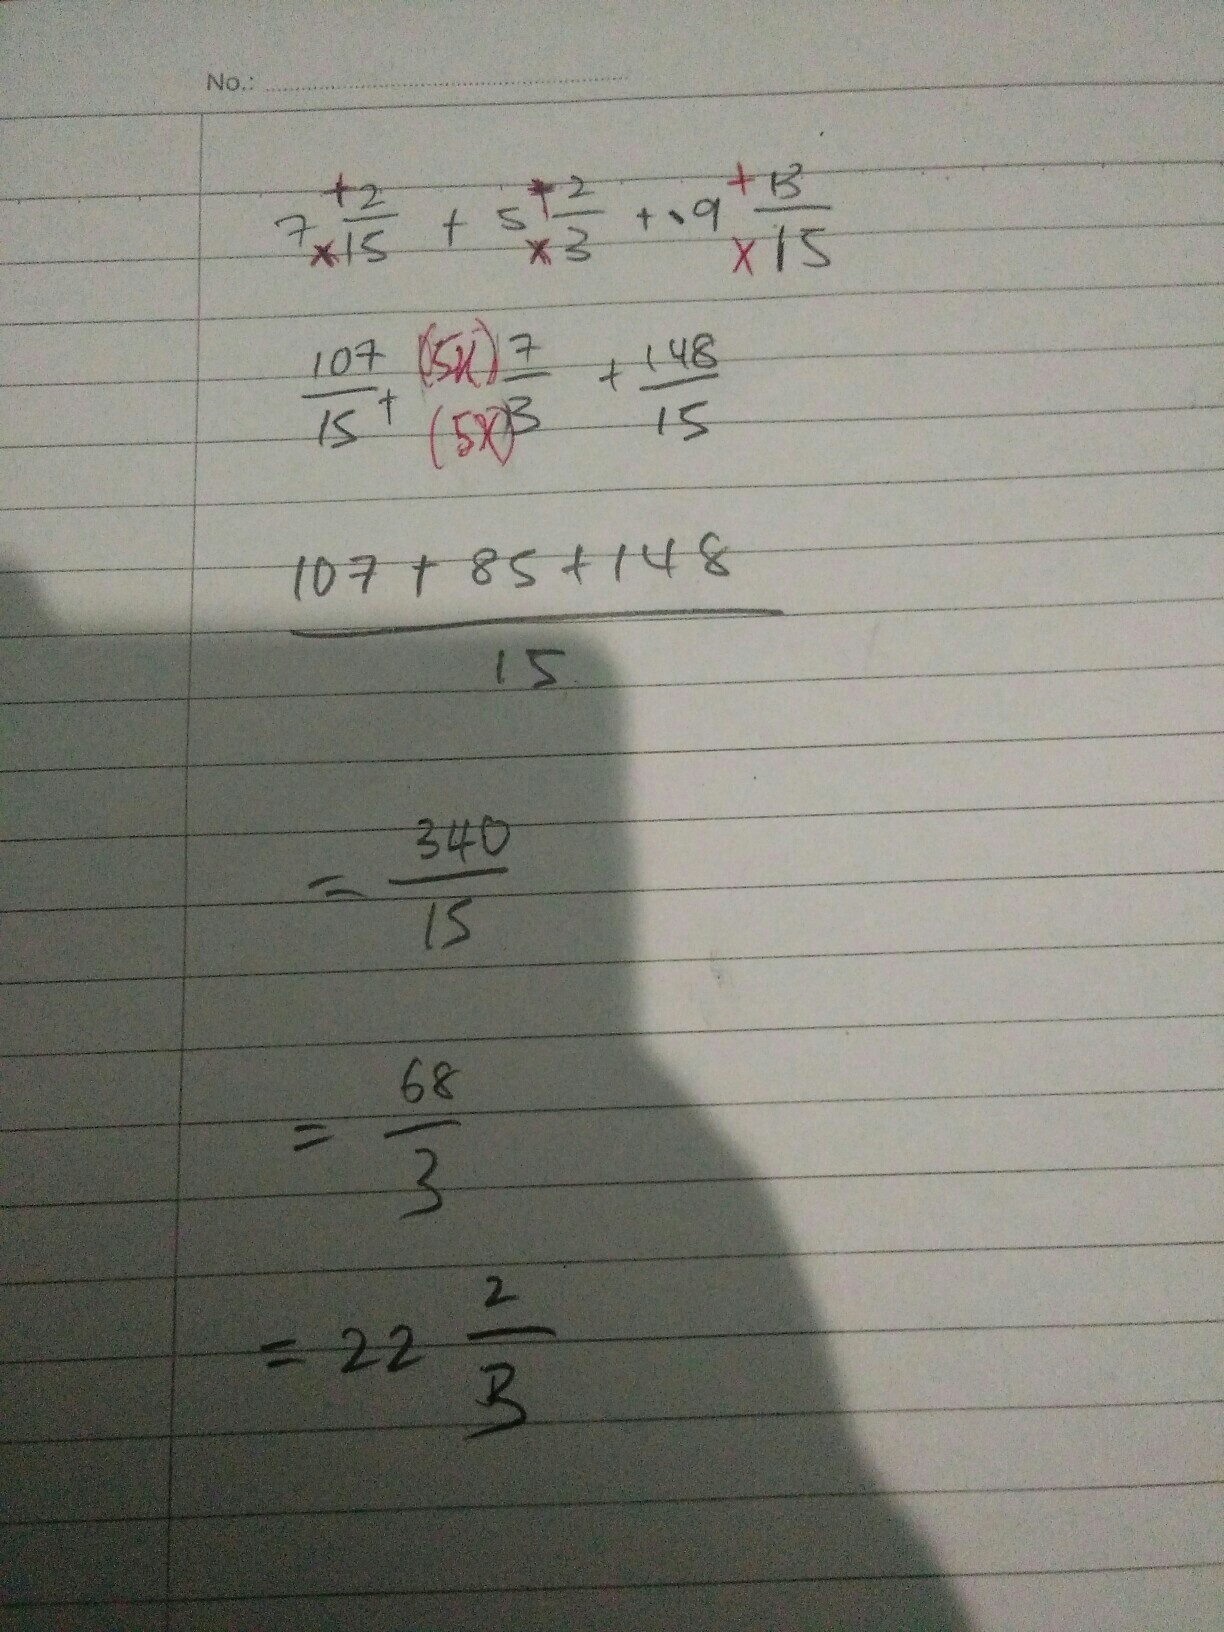 No.:
7 + 2/15 × + 5 + 2/3 × + 9 + 13/15 ×
107/15 + (5x)17/(5x)3 + 148/15
107 + 85 + 148
15
= 340/15
= 68/3
= 22 2/3